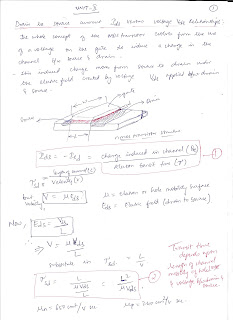 UNIT-II
①
Drain to source current Ids versus voltage Vds Relationships:
The whole concept of the MOS transistor evolves from the use
of a voltage on the gate to induce a charge in the
channel b/w source & drain.
This induced charge move from source to drain under
the electric field created by voltage Vds applied b/w drain
& source.
NMOS transistor structure
Ids = -Isd = charge induced in channel (Qc) / Electron transit time (τ)
①
τsd = length of channel (L) / Velocity (v)
but velocity V = μ Eds
μ = electron or hole mobility surface
Eds = Electric field (drain to source)
Now, Eds = Vds / L
⇒ V = μ Vds / L
substitute in τsd = L / V
τsd = L / (μ Vds / L) = L² / μ Vds
②
Transit time
depends upon
length of channel
mobility of
& voltage
source.
μn = 650 cm²/V sec
μp = 240 cm²/V sec.